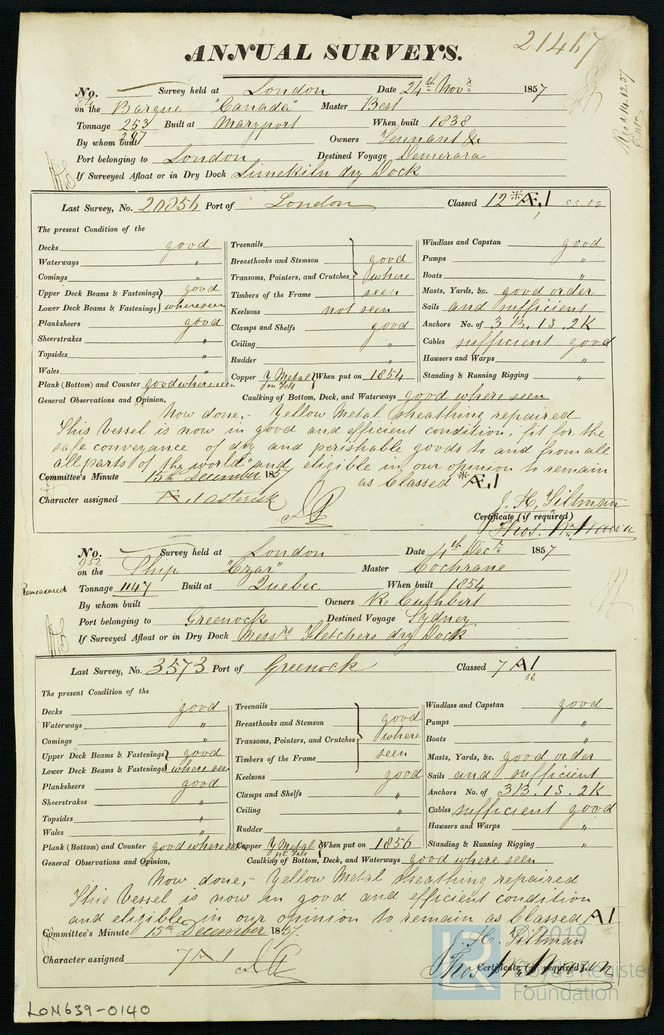 21467
ANNUAL SURVEYS.
No. Survey held at London Date 24th Novr 1857
on the Barque "Canada" Master Best
Tonnage 253 Built at Maryport When built 1838
287
By whom built Owners Tennant &
Port belonging to London Destined Voyage Demerara
If Surveyed Afloat or in Dry Dock Limekiln dry Dock
Last Survey, No. 20856 Port of London Classed 12 * Æ1
The present Condition of the
Decks good Treenails Windlass and Capstan good
Waterways " Breasthooks and Stemson good Pumps "
Comings " Transoms, Pointers, and Crutches where Boats "
Upper Deck Beams & Fastenings good Timbers of the Frame seen Masts, Yards, &c. good order
Lower Deck Beams & Fastenings where seen Keelsons not seen Sails and sufficient
Planksheers good Clamps and Shelfs good Anchors No. of 3B. 1S. 2K
Sheerstrakes " Ceiling " Cables sufficient good
Topsides " Rudder " Hawsers and Warps "
Wales " Copper Y Metal on felt When put on 1854 Standing & Running Rigging "
Plank (Bottom) and Counter good where seen Caulking of Bottom, Deck, and Waterways good where seen
General Observations and Opinion,
Now done,- Yellow Metal sheathing repaired
This Vessel is now in good and efficient condition, fit for the
safe conveyance of dry and perishable goods to and from all
all parts of the world and eligible in our opinion to remain
as Classed *Æ1
Committee's Minute 15th December 1857
J. H. Tiltman
Character assigned Æ1 asterisk
Certificate (if required)
No. Survey held at London Date 4th Decr 1857
952
on the Ship "Czar" Master Cochrane
Remeasured Tonnage 1147 Built at Quebec When built 1854
By whom built Owners R. Cuthbert
Port belonging to Greenock Destined Voyage Sydney
If Surveyed Afloat or in Dry Dock Messrs Fletchers dry Dock
Last Survey, No. 3573 Port of Greenock Classed 7 A1
The present Condition of the
Decks good Treenails Windlass and Capstan good
Waterways " Breasthooks and Stemson good Pumps "
Comings " Transoms, Pointers, and Crutches where Boats "
Upper Deck Beams & Fastenings good Timbers of the Frame seen Masts, Yards, &c. good order
Lower Deck Beams & Fastenings where seen Keelsons good Sails and sufficient
Planksheers good Clamps and Shelfs " Anchors No. of 3B. 1S. 2K
Sheerstrakes " Ceiling " Cables sufficient good
Topsides " Rudder " Hawsers and Warps "
Wales " Copper Y Metal on felt When put on 1856 Standing & Running Rigging "
Plank (Bottom) and Counter good where seen Caulking of Bottom, Deck, and Waterways good where seen
General Observations and Opinion,
Now done,- Yellow Metal sheathing repaired
This Vessel is now in good and efficient condition
and eligible in our opinion to remain as Classed A1
Committee's Minute 15th December 1857.
J. H. Tiltman
Character assigned 7 A1
Certificate (if required)
LON639-0140
LR 2019
Lloyd's Register
Foundation